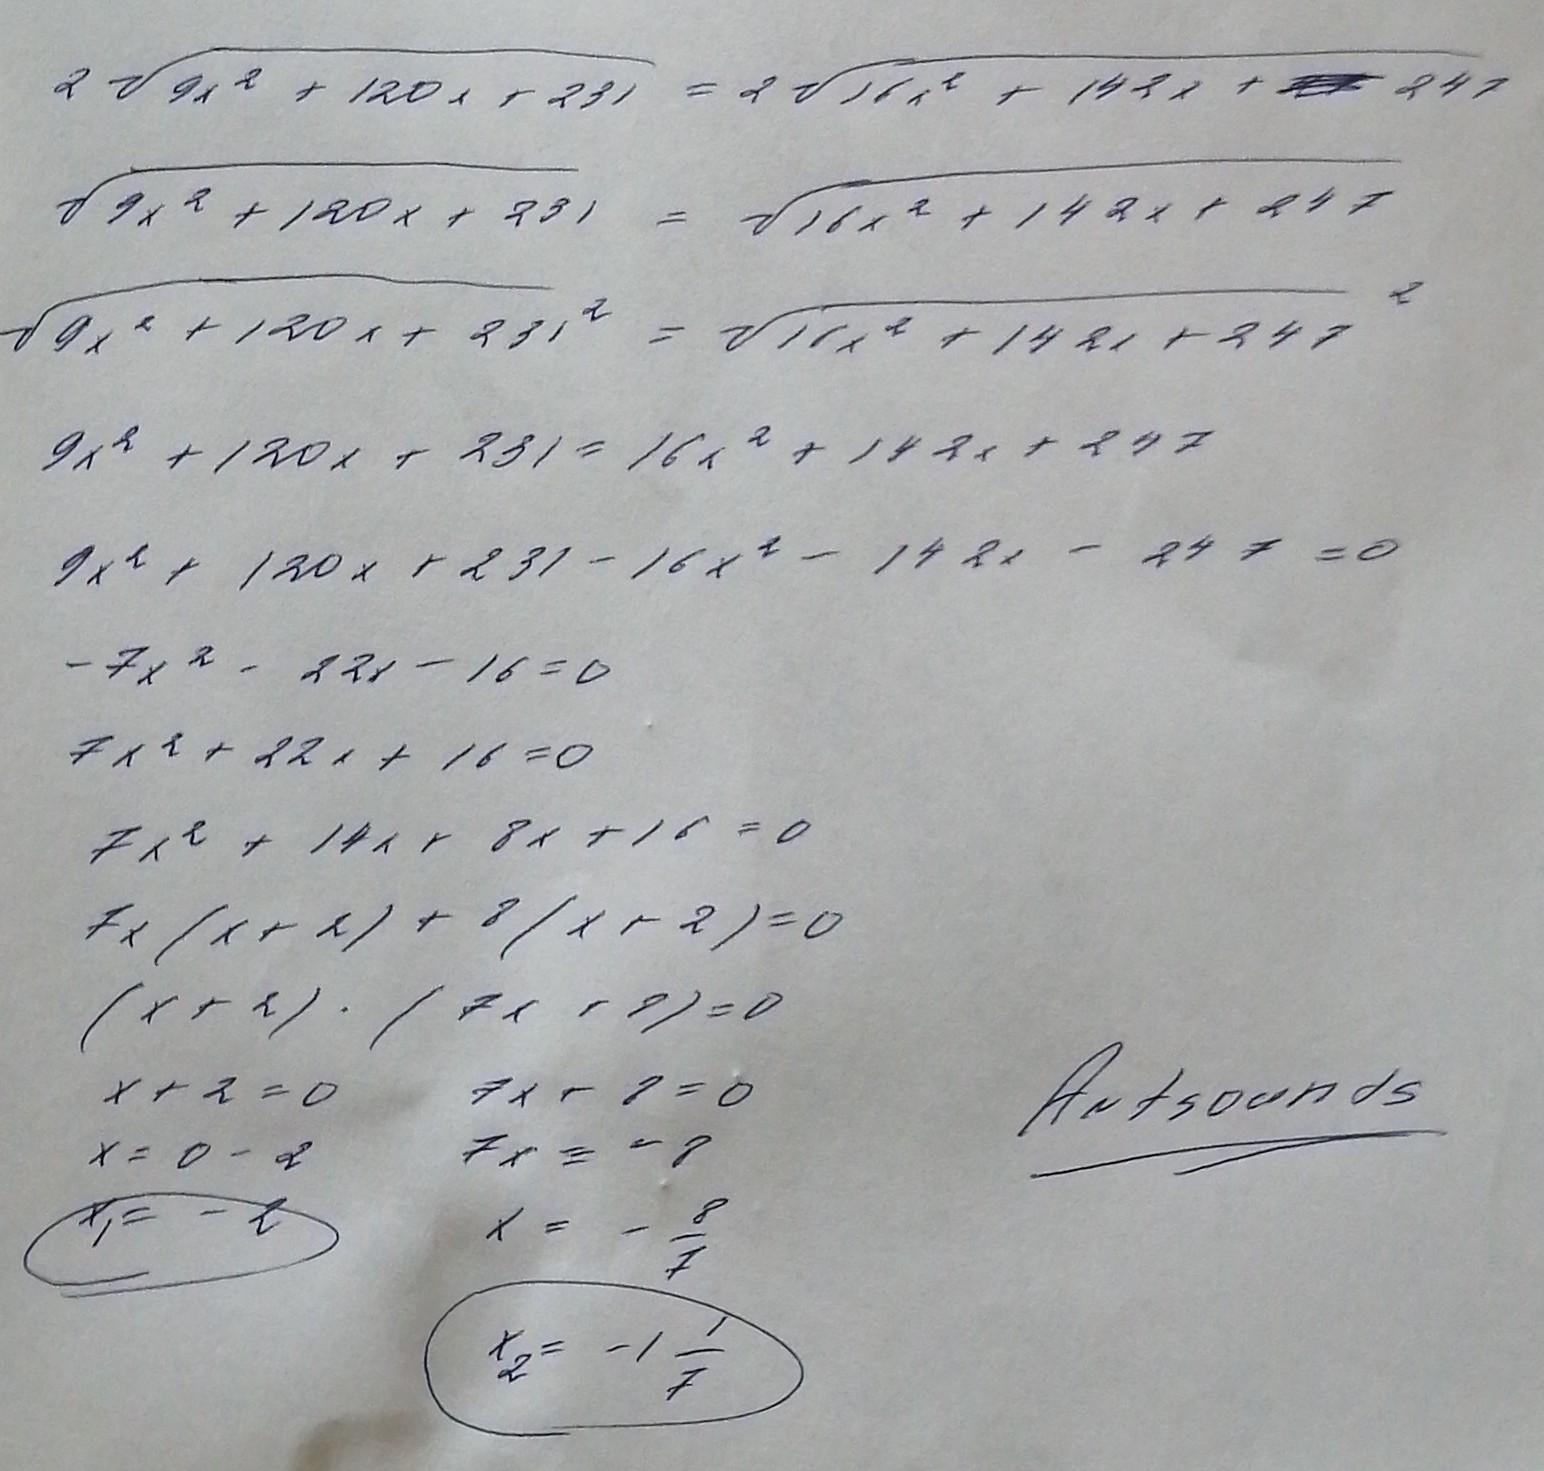 2√9x² + 120x + 231 = 2√16x² + 142x + 247
√9x² + 120x + 231 = √16x² + 142x + 247
√9x² + 120x + 231² = √16x² + 142x + 247²
9x² + 120x + 231 = 16x² + 142x + 247
9x² + 120x + 231 - 16x² - 142x - 247 = 0
-7x² - 22x - 16 = 0
7x² + 22x + 16 = 0
7x² + 14x + 8x + 16 = 0
7x(x + 2) + 8(x + 2) = 0
(x + 2) · (7x + 8) = 0
x + 2 = 0 7x + 8 = 0
x = 0 - 2 7x = -8
x₁ = -2 x = -8/7
x₂ = -1 1/7
Antsounds